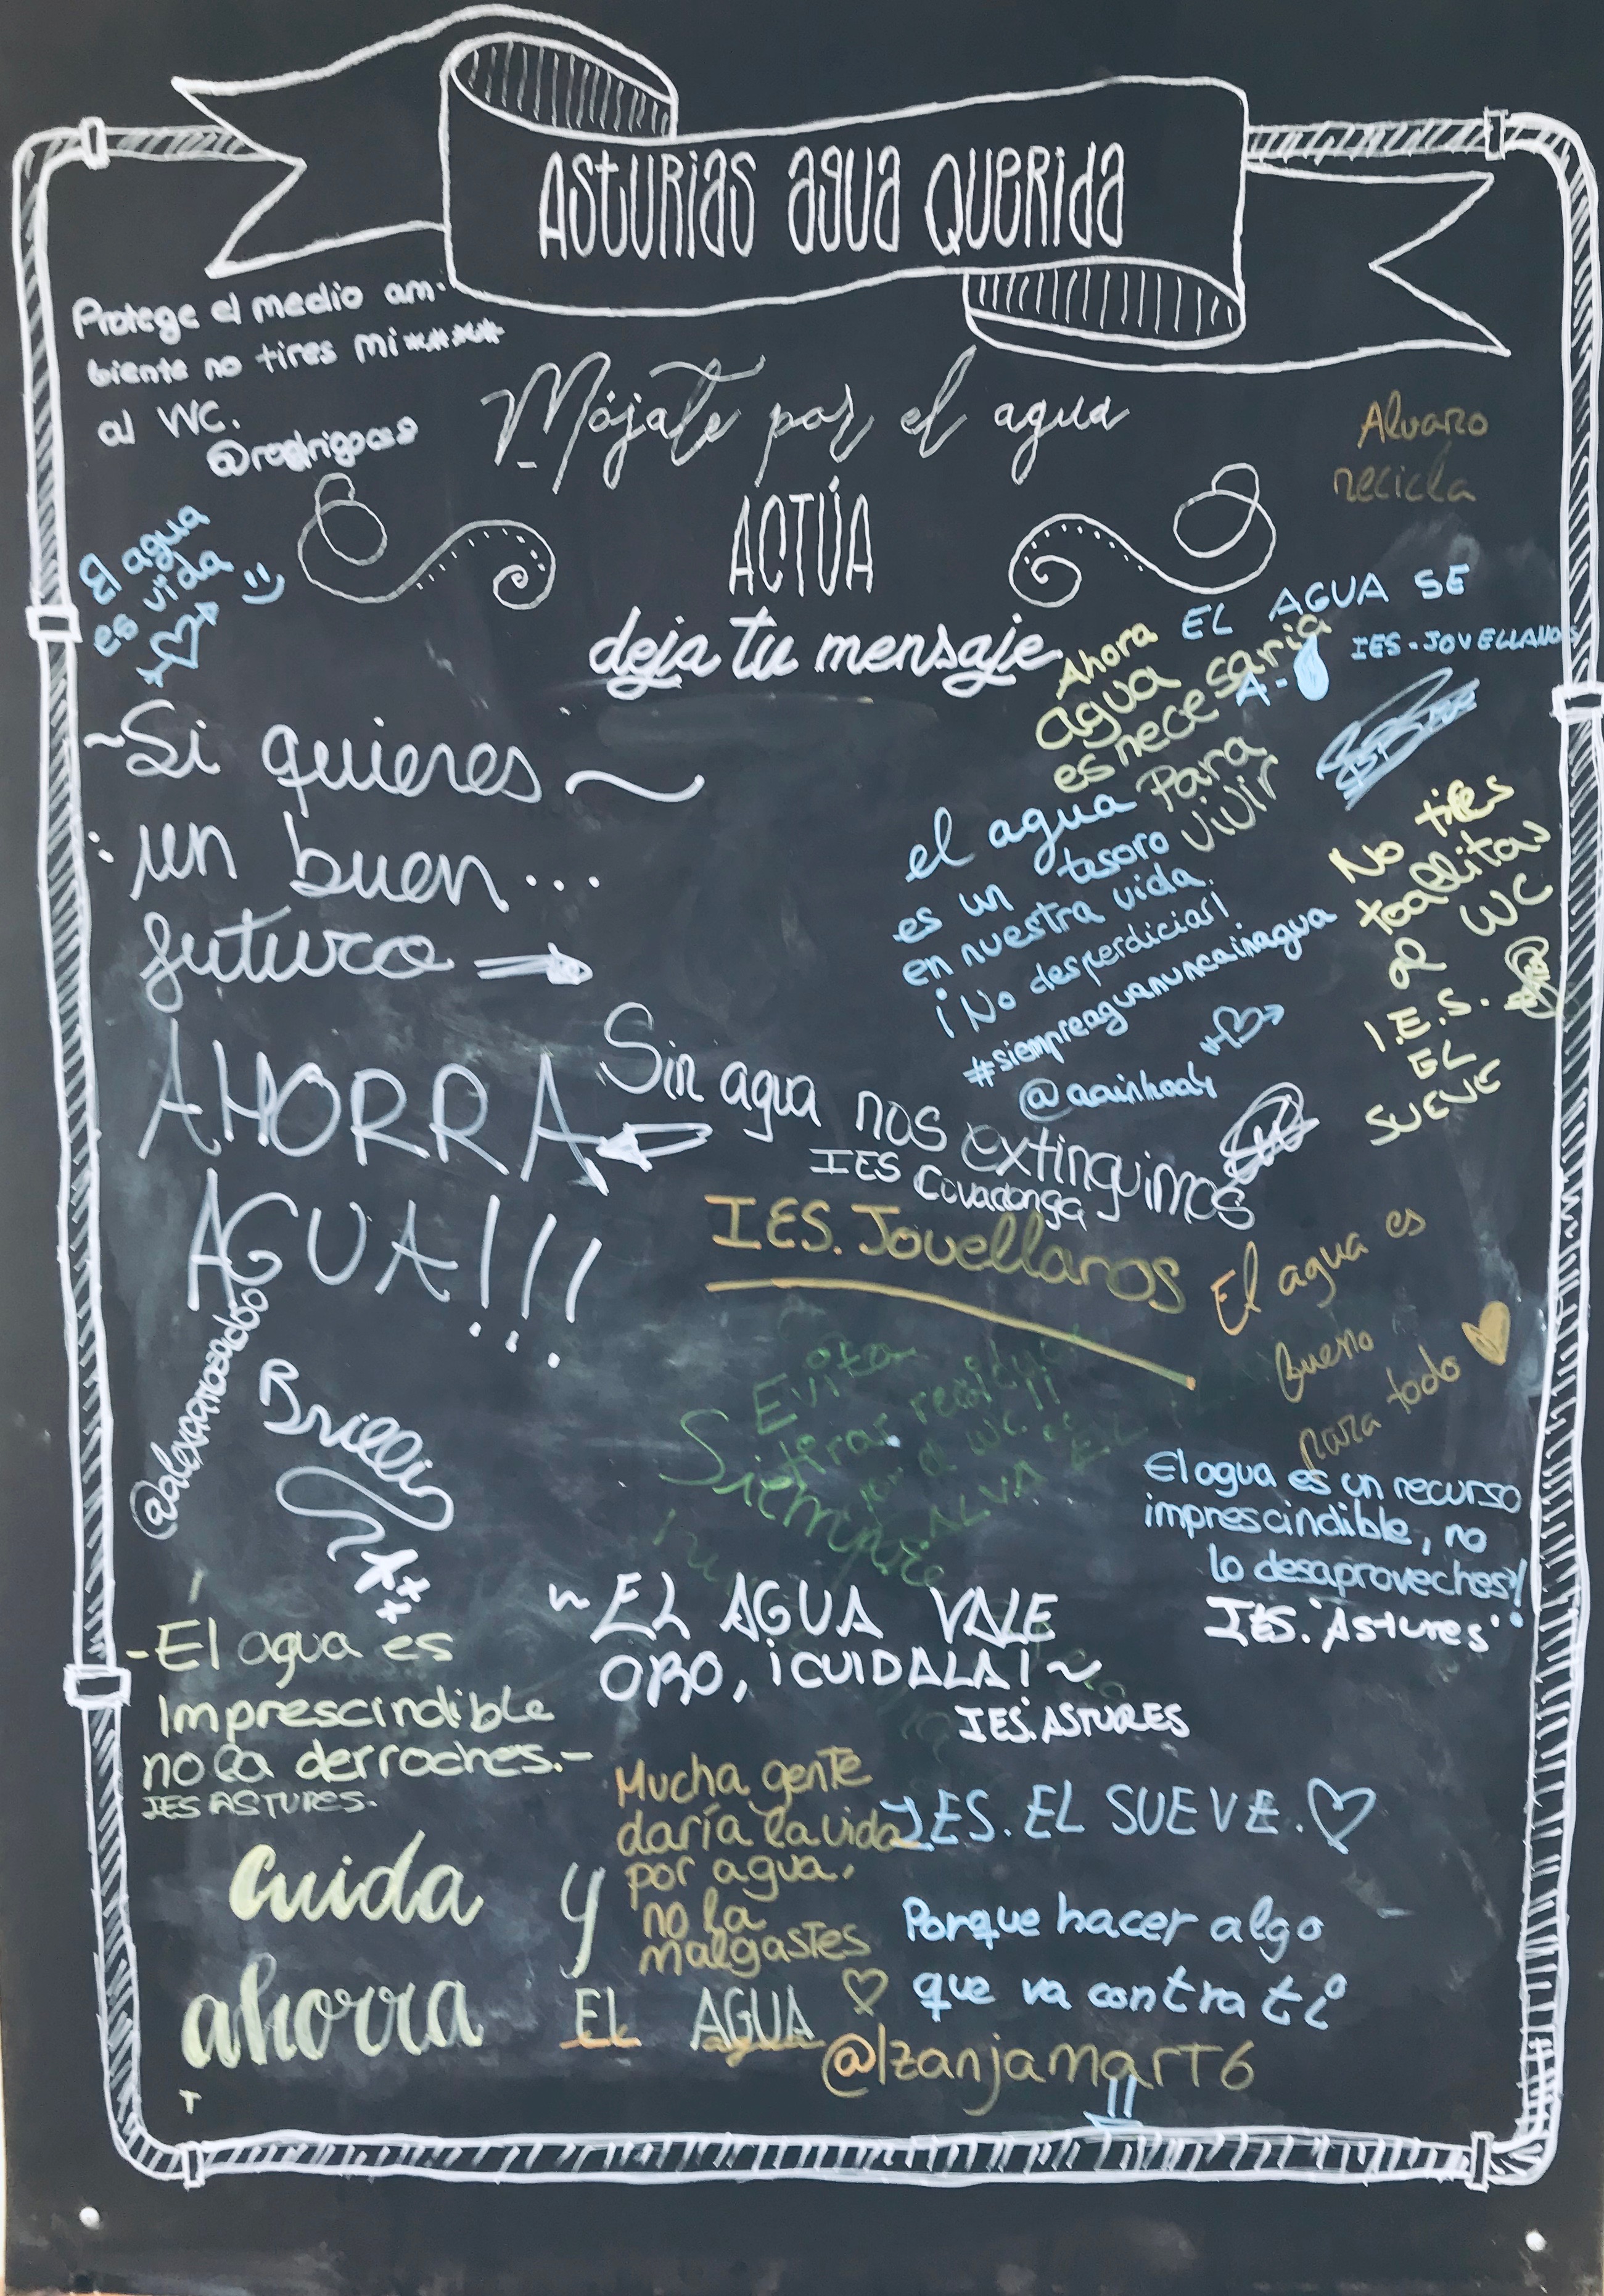 ASTURIAS AGUA QUERIDA
Protege el medio am-
biente no tires mi
al WC.
Mójate por el agua
ACTÚA
deja tu mensaje
Alvaro
recicla
El agua
es vida
EL AGUA SE
A-
IES-JOVELLANOS
Ahora
agua
es necesaria
Para
vivir
-Si quieres
un buen...
futuro
AHORRA
AGUA!!!
el agua
es un tesoro
en nuestra vida.
¡No desperdiciar!
#siempreaguanuncainagua
No tires
toallitas
al WC
I.E.S.
EL
SUEVE
Sin agua nos extinguimos
IES Covadonga
IES. Jovellanos
El agua es
bueno
para todo
Evitar
Siempre
El agua es un recurso
imprescindible, no
lo desaproveches!
IES. "Astures"
~EL AGUA VALE
ORO, ¡CUIDALA!~
IES. ASTURES
-El agua es
Imprescindible
no la derroches.-
IES ASTURES.
Mucha gente
daría la vida
por agua,
no la
malgastes
IES. EL SUEVE.
Cuida y
ahorra EL AGUA
Porque hacer algo
que va contra ti
@lzanjamart6